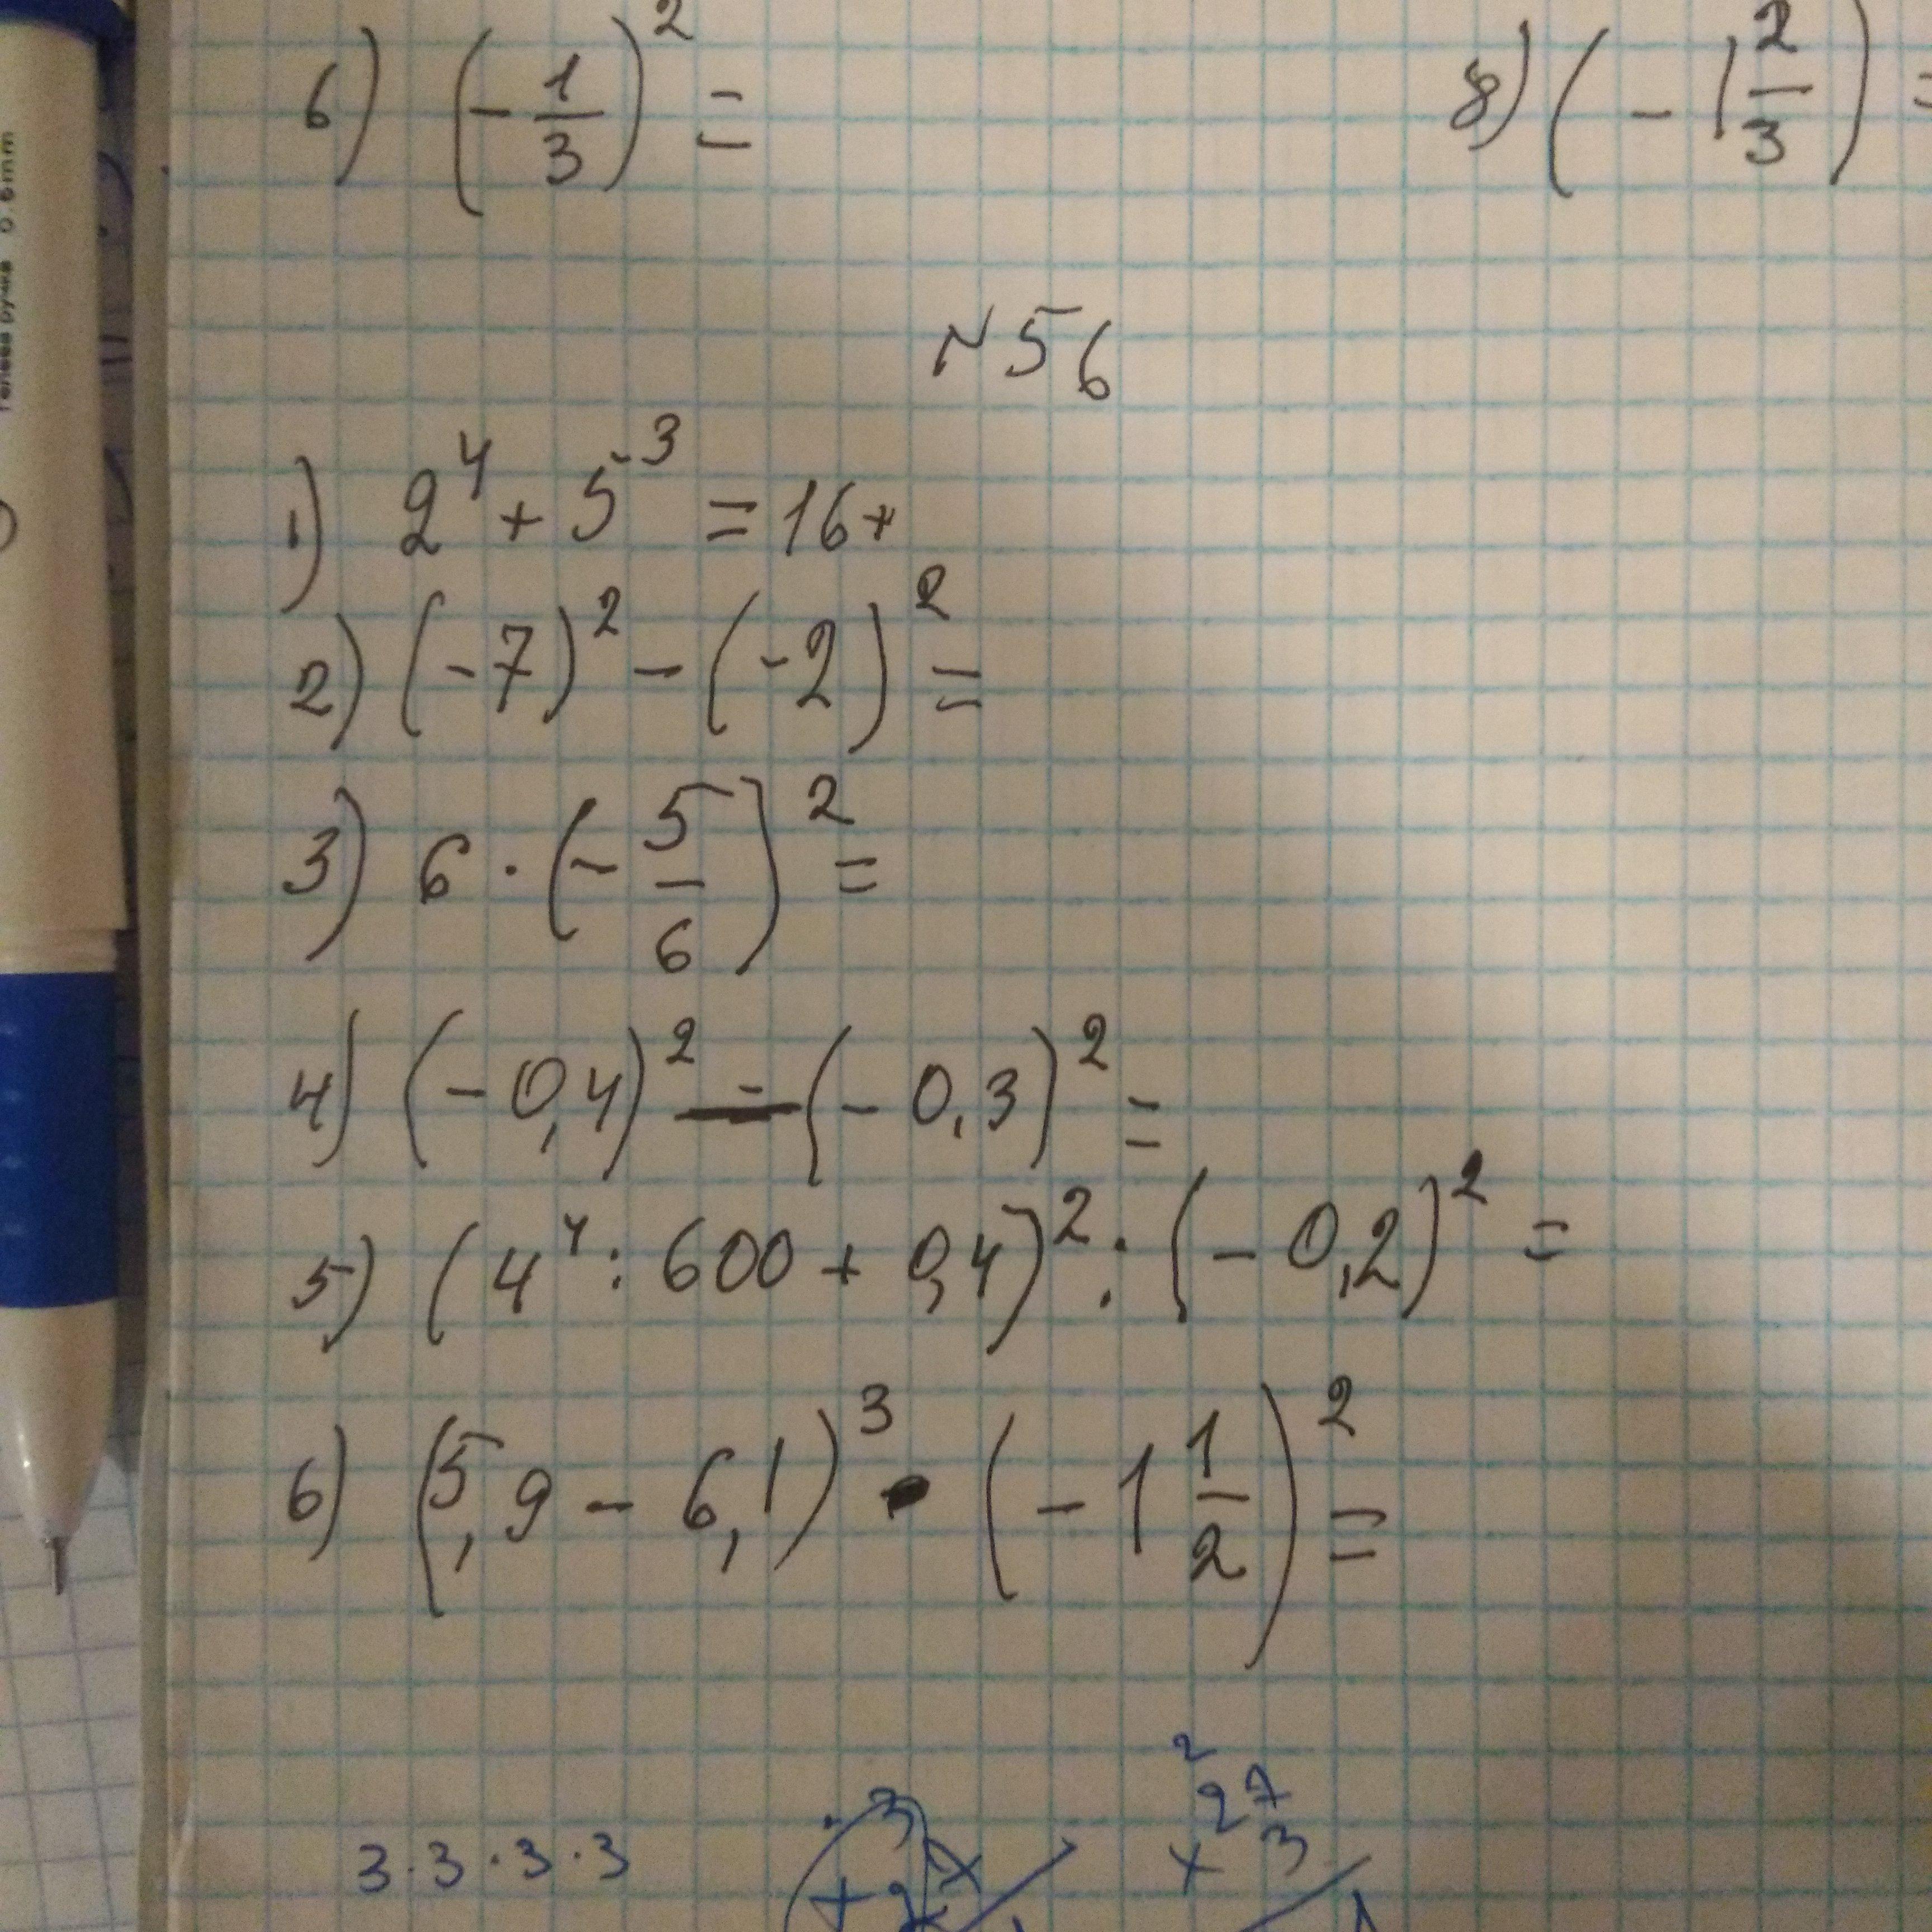 6) (-1/3)² =
8) (-1 2/3) =
N 56
1) 2⁴ + 5³ = 16 +
2) (-7)² - (-2)² =
3) 6 · (-5/6)² =
4) (-0,4)² - (-0,3)² =
5) (4⁴ : 600 + 0,4)² : (-0,2)² =
6) (5,9 - 6,1)³ · (-1 1/2)² =
2
27
3·3·3·3
× 3
0.6mm
ручка